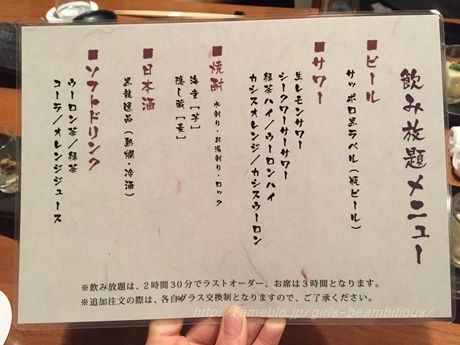 飲み放題メニュー
■ビール
サッポロ黒ラベル（瓶ビール）
■サワー
生レモンサワー
シークワーサーサワー
緑茶ハイ／ウーロンハイ
カシスオレンジ／カシスウーロン
■焼酎
水割り・お湯割り・ロック
海童［芋］
隠し蔵［麦］
■日本酒
黒龍逸品（熱燗・冷酒）
■ソフトドリンク
ウーロン茶／緑茶
コーラ／オレンジジュース
※飲み放題は、２時間３０分でラストオーダー、お席は３時間となります。
※追加注文の際は、各自グラス交換制となりますので、ご了承ください。
http://ameblo.jp/girls-beambitious/